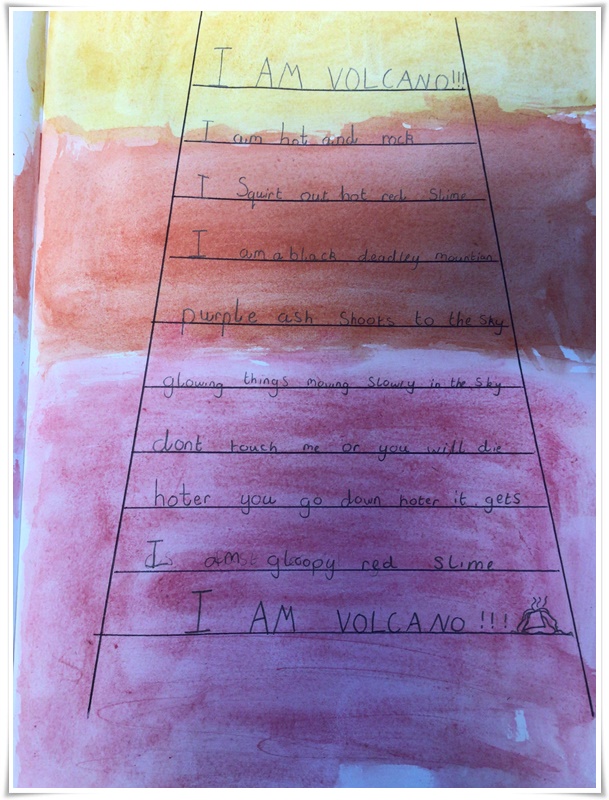 I AM VOLCANO!!!
I am hot and rock
I Squirt out hot red Slime
I am a black deadley mountian
purple ash Shoots to the sky
glowing things moving slowly in the sky
dont touch me or you will die
hoter you go down hoter it gets
I am gloopy red slime
I AM VOLCANO !!!